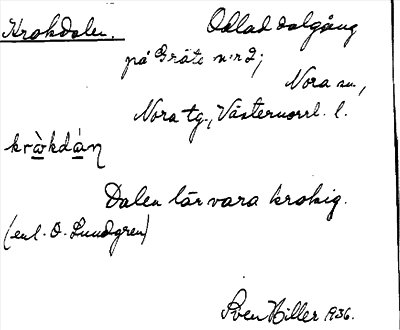 Krokdalen. Odlad dalgång
på Gräte nr 2;
Nora sn,
Nora tg., Västernorrl. l.
kràkdán
Dalen lär vara krokig.
(enl. O. Lundgren)
Sven Hiller 1936.